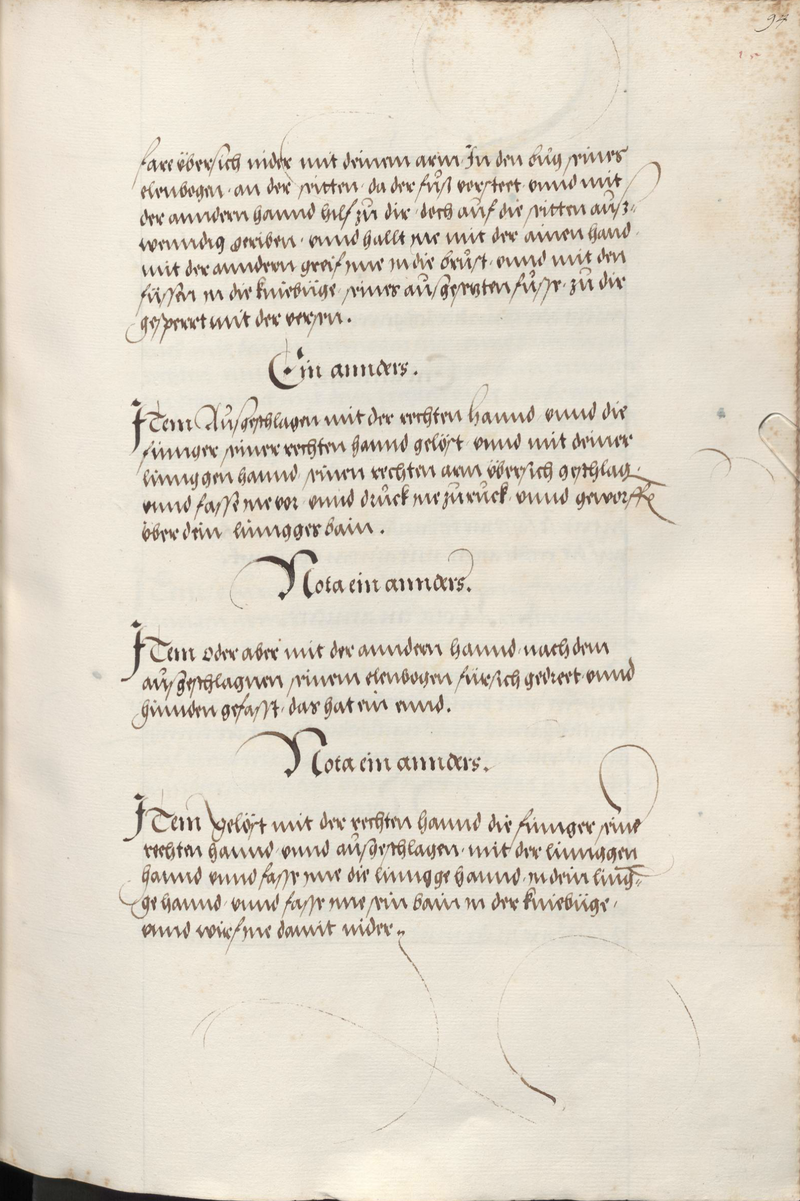 94
fare übersich nider mit deinem arm In den bůg seines
elenbogen · an der seitten · da der fůß vorsteet vnnd mit
der anndern hannd hilf zu dir · doch auf die seitten ausz-
wenndig geriben · vnnd hallt ine mit der ainen hand
mit der anndern greif ime in die brůst · vnnd mit den
füssen in die kniebüge · seines ausgesetzten fůss · zu dir
gesperrt mit der versen .
Ein annders .
ITem Aůsgeschlagen mit der rechten hannd vnnd die
finnger seiner rechten hannd gelöst vnnd mit deiner
linnggen hannd seinen rechten arm übersich geschlag
vnnd fasse ine vor · vnnd drůck ine zurůck · vnnd geworffe
über dein linngges bain .
Nota ein annders .
ITem oder aber mit der anndern hannd · nach dem
aůsgeschlagnen seinem elenbogen fürsich gedreet · vnnd
hinnden gefasst · das hat ein ennd .
Nota ein annders .
ITem gelöst mit der rechten hannd die finnger seine
rechten hannd · vnnd aůsgeschlagen · mit der linnggen
hannd vnnd fasse ime die lingge hannd · in dein ling-
ge hannd · vnnd fasse ime sein bain in der kniebüge ·
vnnd wirf ine damit nider .